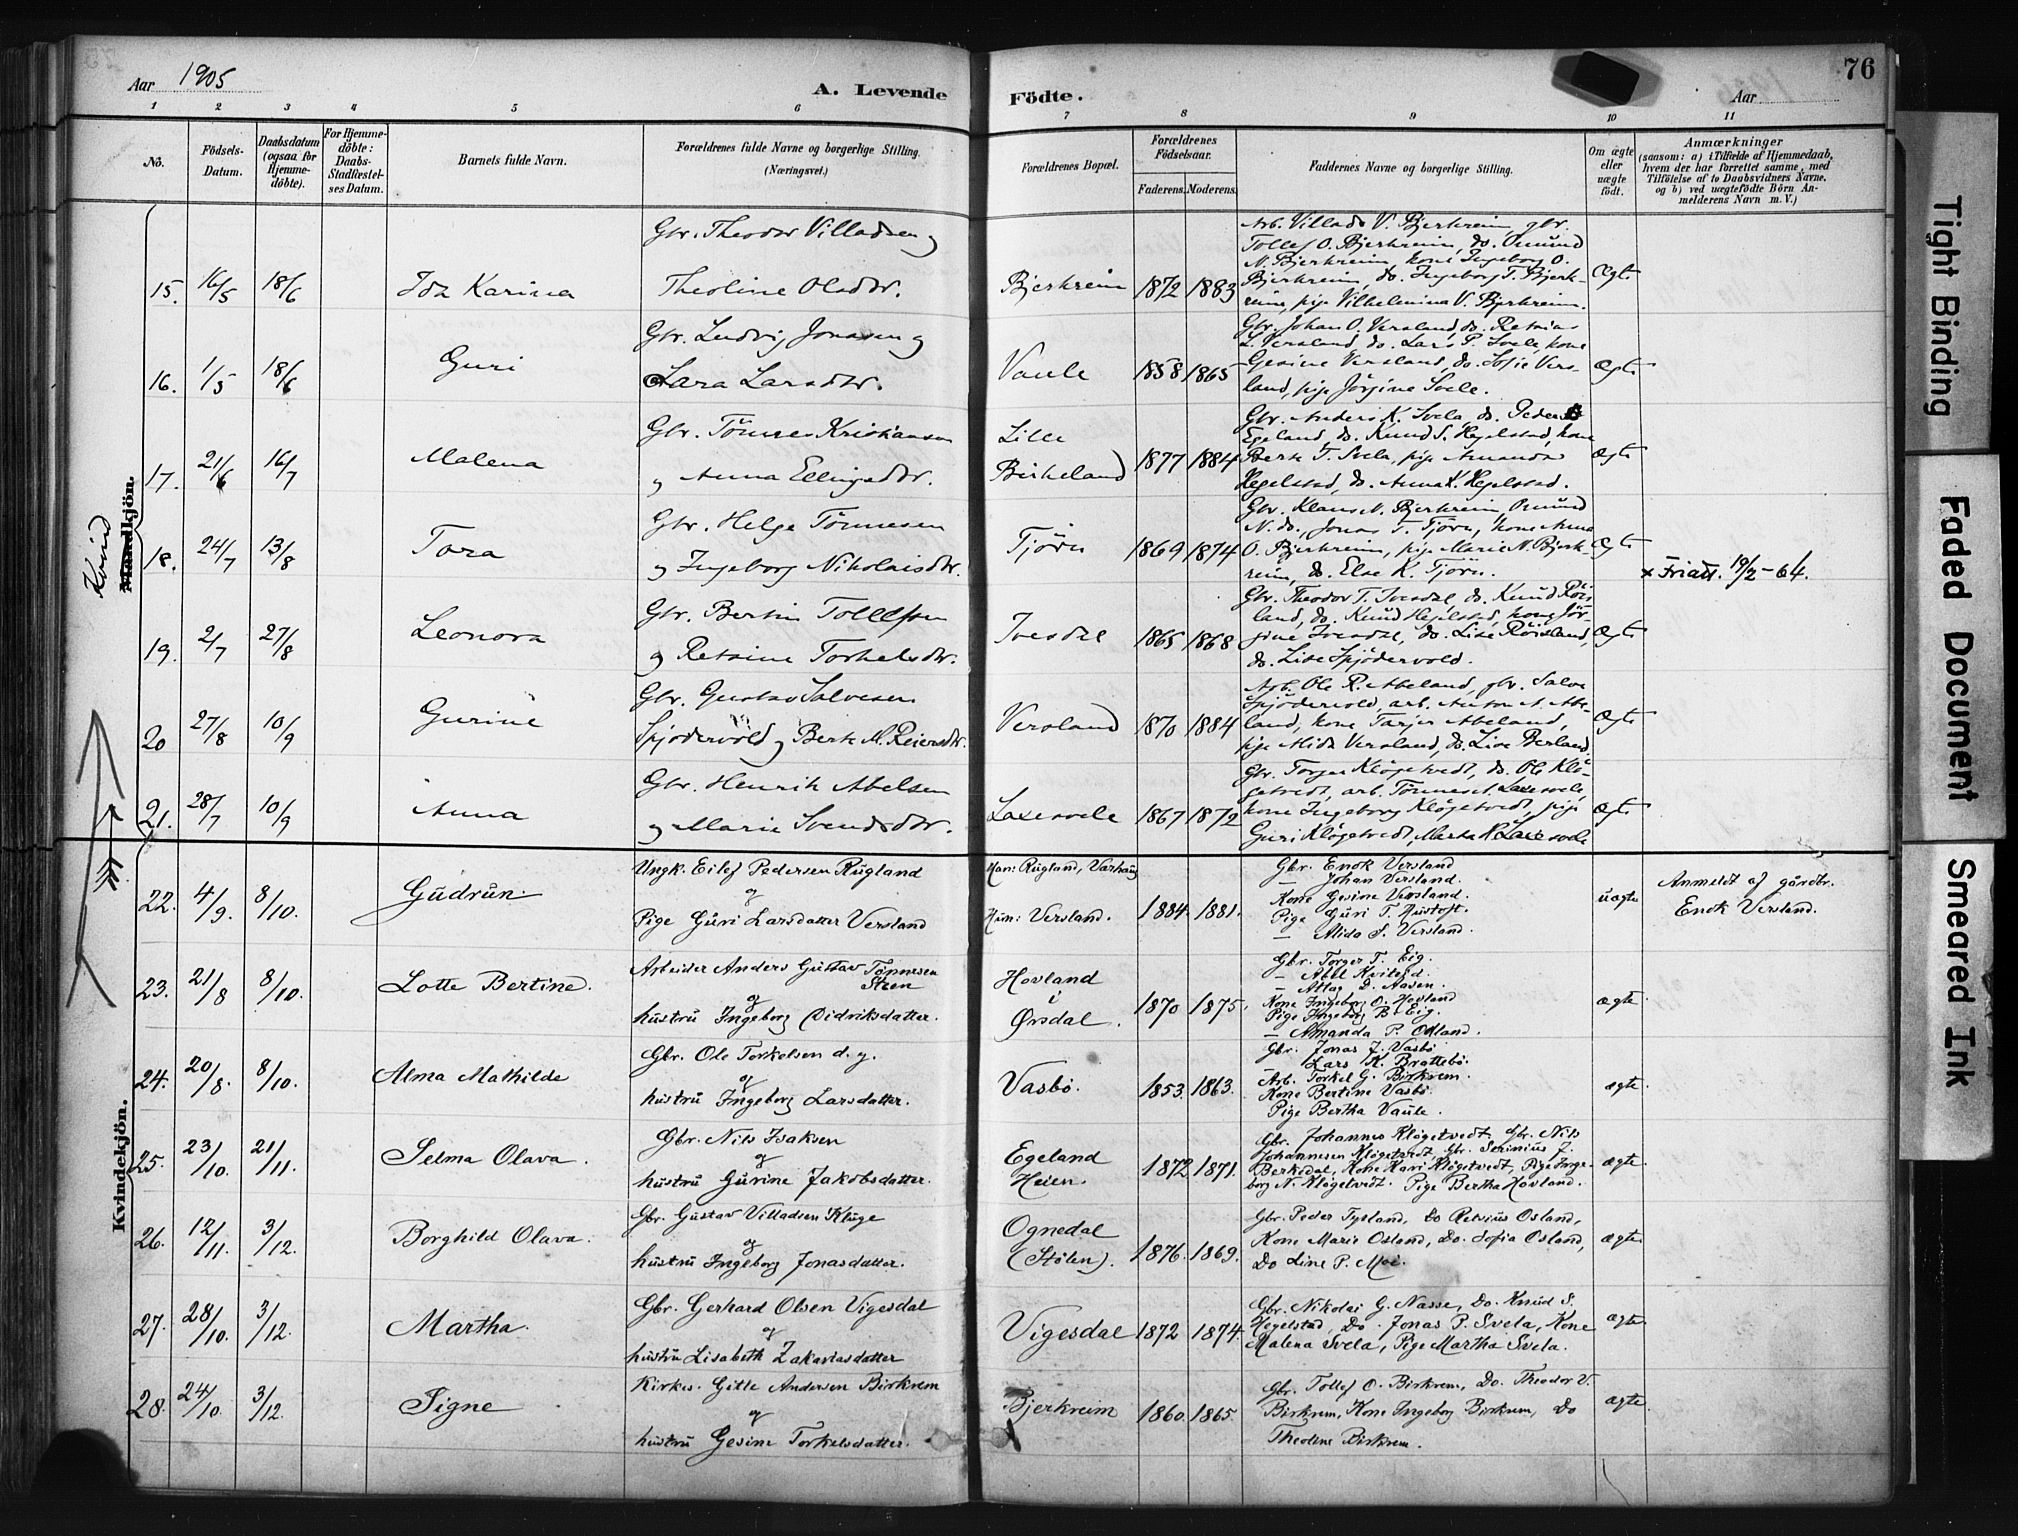 Aar 1905
A. Levende Födte.
Aar
76
1 2 3 4 5 6 7 8 9 10 11
No.
Födsels-Datum.
Daabsdatum (ogsaa for Hjemme-döbte).
For Hjemme-döbte: Daabs-Stadfæstel-ses Datum.
Barnets fulde Navn.
Forældrenes fulde Navne og borgerlige Stilling. (Næringsvei.)
Forældrenes Bopæl.
Forældrenes Födselsaar.
Faderens. Moderens.
Faddernes Navne og borgerlige Stilling.
Om ægte eller uægte født.
Anmærkninger
(saasom: a) i Tilfælde af Hjemmedaab, hvem der har forrettet samme, med Tilföielse af to Daabsvidners Navne, og b) ved uægtefödte Börn An-melderens Navn m. V.)
Kvind
Mandkjön.
15. 16/5 18/6 Ida Karina
Gbr. Theodor Villadsen og
Theoline Olsdtr.
Bjerkreim 1872 1883
Arb. Villads V. Bjerkreim, gbr.
Tollef O. Bjerkreim, do. Omund
N. Bjerkreim, kone Ingeborg O.
Bjerkreim, do. Ingeborg T. Bjerk-
reim, pige Vilhelmina V. Bjerkreim.
Ægte
16. 1/5 18/6 Guri
Gbr. Ludvig Jonasen og
Lara Larsdtr.
Vaule 1858 1865
Gbr. Johan O. Versland, do. Retsius
L. Versland, do. Lars P. Svele, kone
Gesine Versland, do. Sofie Vers-
land, pige Jörgine Svele.
Ægte
17. 21/6 16/7 Malena
Gbr. Tönnes Kristiansen
og Anna Ellingsdtr.
Lille
Birkeland 1877 1884
Gbr. Anders K. Svela, do. Peder
Egeland, do. Knud S. Hegelstad, kone
Berte T. Svela, pige Amanda
Hegelstad, do. Anna K. Hegelstad.
Ægte
18. 24/7 13/8 Tora
Gbr. Helge Tönnesen
og Ingeborg Nikolaisdtr.
Tjörn 1869 1874
Gbr. Klaus N. Bjerkreim Omund
N. do., Jonas T. Tjörn, kone Anna
O. Bjerkreim, pige Marie N. Bjerk-
reim, do. Else K. Tjörn.
Ægte
x Friatt. 19/2-64.
19. 2/7 27/8 Leonora
Gbr. Bertin Tollefsen
og Retsine Torkelsdtr.
Ivesdal 1865 1868
Gbr. Theodor T. Ivesdal, do. Knud Röis-
land, do. Knud Hegelstad, kone Jör-
gine Ivesdal, do. Lise Röisland,
do. Lise Spjödervold.
Ægte
20 27/8 10/9 Gurine
Gbr. Gustav Salvesen
Spjödervold og Berte M. Reiersdtr.
Versland 1870 1884
Arb. Ole R. Abeland, gbr. Salve
Spjödervold, arb. Anton A. Abe-
land, kone Tarjer Abeland,
pige Alida Versland, do. Lise Berland
Ægte
21. 28/7 10/9 Anna
Gbr. Henrik Abelsen
og Marie Svendsdtr.
Laxesvele 1867 1872
Gbr. Torger Klögetvedt, do. Ole Klö-
getvedt, arb. Tönnes A. Laxesvele,
kone Ingeborg Klögetvedt, pige
Guri Klögetvedt, Marta H. Laxesvele
Ægte
Kvindekjön.
22. 4/9. 8/10. Gudrun.
Ungk. Eilef Pedersen Rugland
og
Pige Guri Larsdatter Versland
Han: Rugland, Varhaug
Hun: Versland. 1884. 1881.
Gbr. Enok Versland
– Johan Versland.
Kone Gesine Versland.
Pige Guri T. Hustoft.
– Alida S. Versland.
uægte
Anmeldt af gårdbr.
Enok Versland.
23. 21/8 8/10. Lotte Bertine.
Arbeider Anders Gustav Tönnesen
Steen
og
hustru Ingeborg Didriksdatter.
Hovland
i
Ørsdal. 1870 1875.
Gbr. Torger T. Eig.
– Abel Kvitlod.
– Attag D. Aasen.
Kone Ingeborg O. Hovland
Pige Ingeborg B. Eig.
– Amanda P. Odland.
ægte
24. 20/8. 8/10. Alma Mathilde
Gbr. Ole Torkelsen d. y.
og
hustru Ingeborg Larsdatter.
Vasbö. 1853. 1863.
Gbr. Jonas J. Vasbö
– Lars K. Brattebö.
Arb. Torkel G. Birkrem.
Kone Bertine Vasbö.
Pige Bertha Vaule.
ægte
25. 23/10. 21/11. Selma Olava.
Gbr. Nils Isaksen
og
hustru Gurine Jakobsdatter.
Egeland
Heien. 1872 1871.
Gbr. Johannes Klögetvedt, Gbr. Nils
Johannesen Klögetvedt, Gbr. Serinius J.
Berksdal, Kone Kari Klögetvedt, Pige Inge-
borg N. Klögetvedt. Pige Bertha Hovland.
ægte
26. 12/11. 3/12. Borghild Olava.
Gbr. Gustav Villadsen Kluge
og
hustru Ingeborg Jonasdatter.
Ognedal
(Stölen). 1876. 1869.
Gbr. Peder Tysland, Do Retsius Osland,
Kone Marie Osland, Do. Sofia Osland,
Do Line P. Moi.
ægte
27. 28/10. 3/12. Martha.
Gbr. Gerhard Olsen Vigesdal
og
hustru Lisabeth Zakariasdatter
Vigesdal 1872 1874.
Gbr. Nikolai G. Nasse, Do. Knud S.
Hegelstad, Do. Jonas P. Svela, Kone
Malena Svela, Pige Martha Svela.
ægte
28. 24/10. 3/12. Signe
Kirkes. Gitle Andersen Birkrem
og
hustru Gesine Torkelsdatter.
Bjerkreim 1860. 1865.
Gbr. Tollef O. Birkrem, Do. Theodor V.
Birkrem, Kone Ingeborg Birkrem, Do
Theoline Birkrem.
ægte
Tight Binding
Faded Document
Smeared Ink